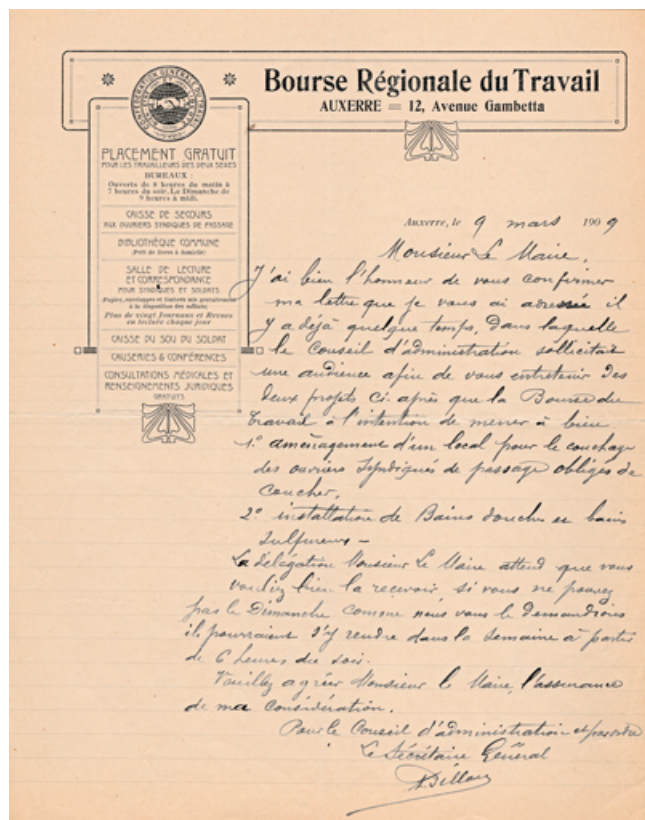 Bourse Régionale du Travail
AUXERRE = 12, Avenue Gambetta
CONFÉDÉRATION GÉNÉRALE DU TRAVAIL
PLACEMENT GRATUIT
POUR LES TRAVAILLEURS DES DEUX SEXES
BUREAUX :
Ouverts de 8 heures du matin à
7 heures du soir. Le Dimanche de
9 heures à midi.
CAISSE DE SECOURS
AUX OUVRIERS SYNDIQUÉS DE PASSAGE
BIBLIOTHÈQUE COMMUNE
(Prêt de livres à domicile)
SALLE DE LECTURE
ET CORRESPONDANCE
POUR SYNDIQUÉS ET SOLDATS
(Papier, enveloppes et timbres mis gratuitement
à la disposition des soldats)
Plus de vingt Journaux et Revues
en lecture chaque jour
CAISSE DU SOU DU SOLDAT
CAUSERIES & CONFÉRENCES
CONSULTATIONS MÉDICALES ET
RENSEIGNEMENTS JURIDIQUES
GRATUITS
Auxerre, le 9 mars 1909
Monsieur Le Maire,
J'ai bien l'honneur de vous confirmer
ma lettre que je vous ai adressée il
y a déjà quelque temps, dans laquelle
le Conseil d'administration sollicitait
une audience afin de vous entretenir des
deux projets ci-après que la Bourse du
travail à l'intention de mener à bien
1º aménagement d'un local pour le couchage
des ouvriers syndiqués de passage obligés de
coucher,
2º installation de Bains douches et bains
sulfureux -
La délégation Monsieur Le Maire attend que vous
vouliez bien la recevoir si vous ne pouvez
pas le Dimanche comme nous vous le demandions
ils pourraient s'y rendre dans la semaine à partir
de 6 heures du soir.
Veuillez agréer Monsieur le Maire, l'assurance
de ma considération.
Pour le Conseil d'administration et par ordre
Le Sécrétaire Général